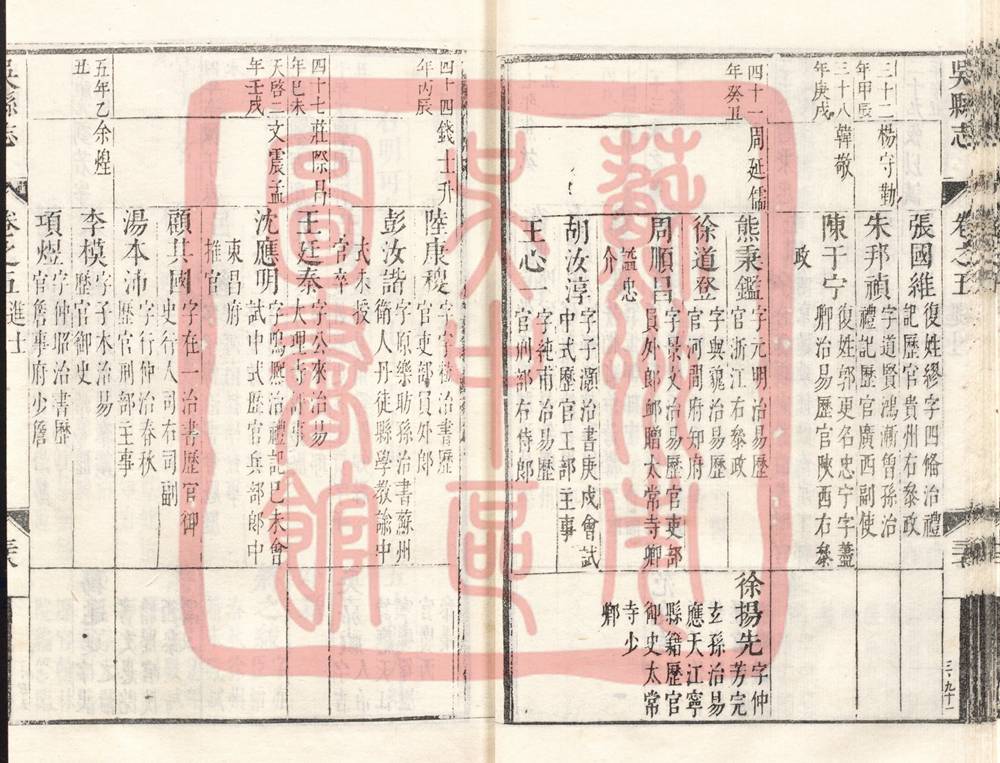 吳縣志
卷之五
三十二年甲辰
楊守勤
張國維 復姓繆字四脩治禮記歷官貴州右叅政
朱邦禎 字道賢鴻漸曾孫治禮記歷官廣西副使
三十八年庚戌
韓敬
陳于宁 復姓郭更名忠宁字藎卿治易歷官陝西右叅政
四十一年癸丑
周延儒
熊秉鑑 字元明治易歷官浙江右叅政
徐揚先 字仲芳完玄孫治易應天江寧縣籍歷官御史太常寺少卿
徐道登 字與貌治易歷官河間府知府
周順昌 字景文治易歷官吏部員外郎贈太常寺卿諡忠介
胡汝淳 字子灝治書庚戌會試中式歷官工部主事
王心一 字純甫治易歷官刑部右侍郎
四十四年丙辰
錢士升
陸康稷 字子褑治書歷官吏部員外郎
彭汝諧 字原樂昉孫治書蘇州衛人丹徒縣學教諭中式未授官卒
四十七年巳未
莊際昌
王廷泰 字公來治易大理寺評事
天啓二年壬戌
文震孟
沈應明 字鳴熈治禮記巳未會試中式歷官兵部郎中東昌府推官
顧其國 字在一治書歷官御史行人司右司副
湯本沛 字行仲治春秋歷官刑部主事
五年乙丑
余煌
李模 字子木治易歷官御史
項煜 字仲昭治書歷官詹事府少詹
吳縣志
卷之五 進士
蘇州市
天中區
圖書館